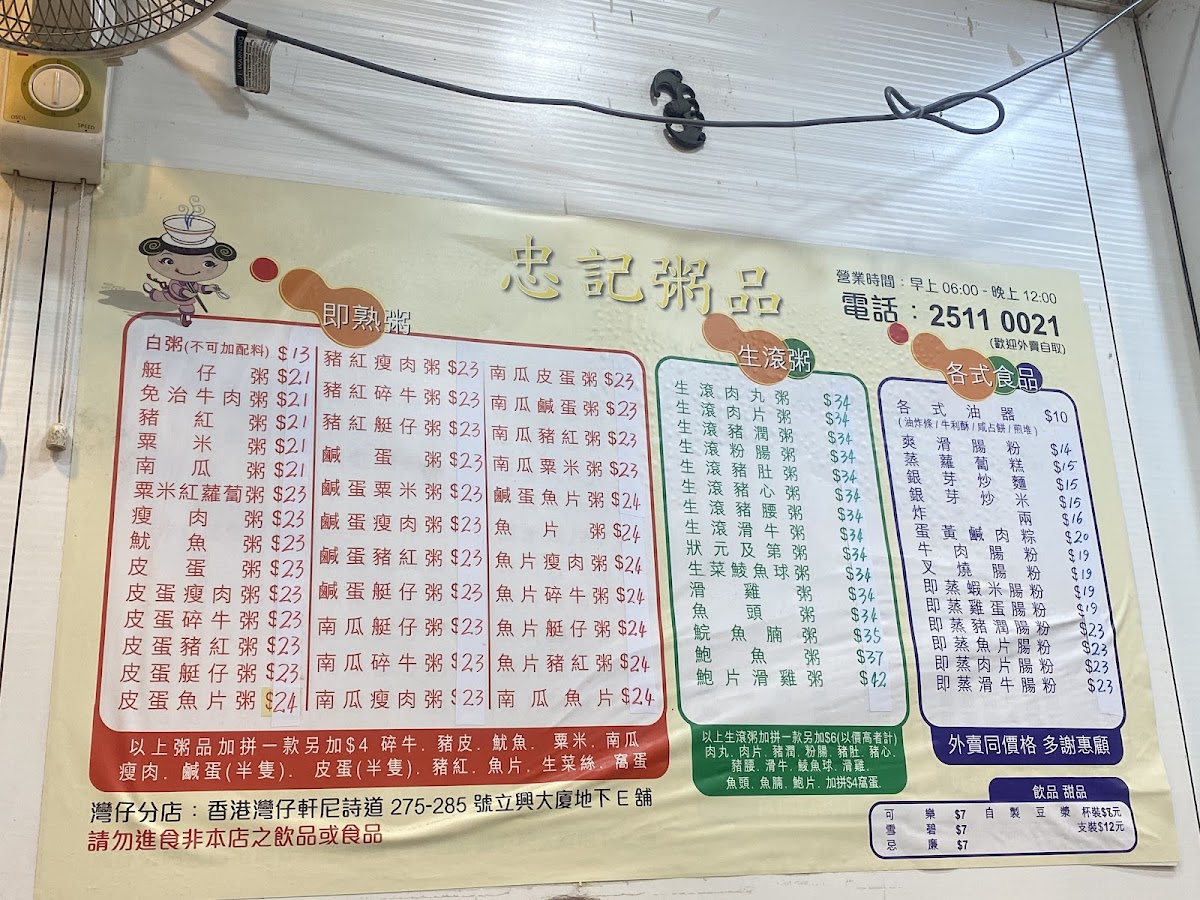 忠記粥品
營業時間：早上 06:00 - 晚上 12:00
電話：2511 0021
(歡迎外賣自取)
即熟粥
白粥(不可加配料) $13
艇仔粥 $21
免治牛肉粥 $21
豬紅粥 $21
粟米粥 $21
南瓜粥 $21
粟米紅蘿蔔粥 $23
瘦肉粥 $23
魷魚粥 $23
皮蛋粥 $23
皮蛋瘦肉粥 $23
皮蛋碎牛粥 $23
皮蛋豬紅粥 $23
皮蛋艇仔粥 $23
皮蛋魚片粥 $24
豬紅瘦肉粥 $23
豬紅碎牛粥 $23
豬紅艇仔粥 $23
鹹蛋粥 $23
鹹蛋粟米粥 $23
鹹蛋瘦肉粥 $23
鹹蛋豬紅粥 $23
鹹蛋艇仔粥 $23
南瓜艇仔粥 $23
南瓜碎牛粥 $23
南瓜瘦肉粥 $23
南瓜皮蛋粥 $23
南瓜鹹蛋粥 $23
南瓜豬紅粥 $23
南瓜粟米粥 $23
鹹蛋魚片粥 $24
魚片粥 $24
魚片瘦肉粥 $24
魚片碎牛粥 $24
魚片艇仔粥 $24
魚片豬紅粥 $24
南瓜魚片 $24
以上粥品加拼一款另加$4 碎牛. 豬皮. 魷魚. 粟米. 南瓜
瘦肉. 鹹蛋(半隻). 皮蛋(半隻). 豬紅. 魚片. 生菜絲. 窩蛋
生滾粥
生滾肉丸粥 $34
生滾肉片粥 $34
生滾豬潤粥 $34
生滾粉腸粥 $34
生滾豬肚粥 $34
生滾豬心粥 $34
生滾豬腰粥 $34
生滾滑牛粥 $34
狀元及第粥 $34
生菜鯪魚球粥 $34
滑雞粥 $34
魚頭粥 $34
鯇魚腩粥 $35
鮑魚粥 $37
鮑片滑雞粥 $42
以上生滾粥加拼一款另加$6(以價高者計)
肉丸. 肉片. 豬潤. 粉腸. 豬肚. 豬心.
豬腰. 滑牛. 鯪魚球. 滑雞.
魚頭. 魚腩. 鮑片. 加拼$4窩蛋.
各式食品
各式油器 $10
(油炸條 / 牛利酥 / 咸占餅 / 煎堆)
爽滑腸粉 $14
蒸蘿蔔糕 $15
銀芽炒麵 $15
銀芽炒米 $15
炸兩 $16
蛋黃鹹肉粽 $20
牛肉腸粉 $19
叉燒腸粉 $19
即蒸蝦米腸粉 $19
即蒸雞蛋腸粉 $19
即蒸豬潤腸粉 $23
即蒸魚片腸粉 $23
即蒸肉片腸粉 $23
即蒸滑牛腸粉 $23
外賣同價格 多謝惠顧
飲品 甜品
可樂 $7 自製豆漿 杯裝$8元
雪碧 $7 支裝$12元
忌廉 $7
灣仔分店：香港灣仔軒尼詩道 275-285 號立興大廈地下 E 舖
請勿進食非本店之飲品或食品
OSCIL
SPEED